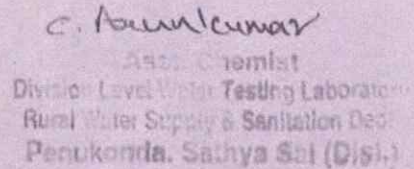 C. Arunkumar
Asst. Chemist
Division Level Water Testing Laboratory
Rural Water Supply & Sanitation Dept.
Penukonda. Sathya Sai (Dist.)